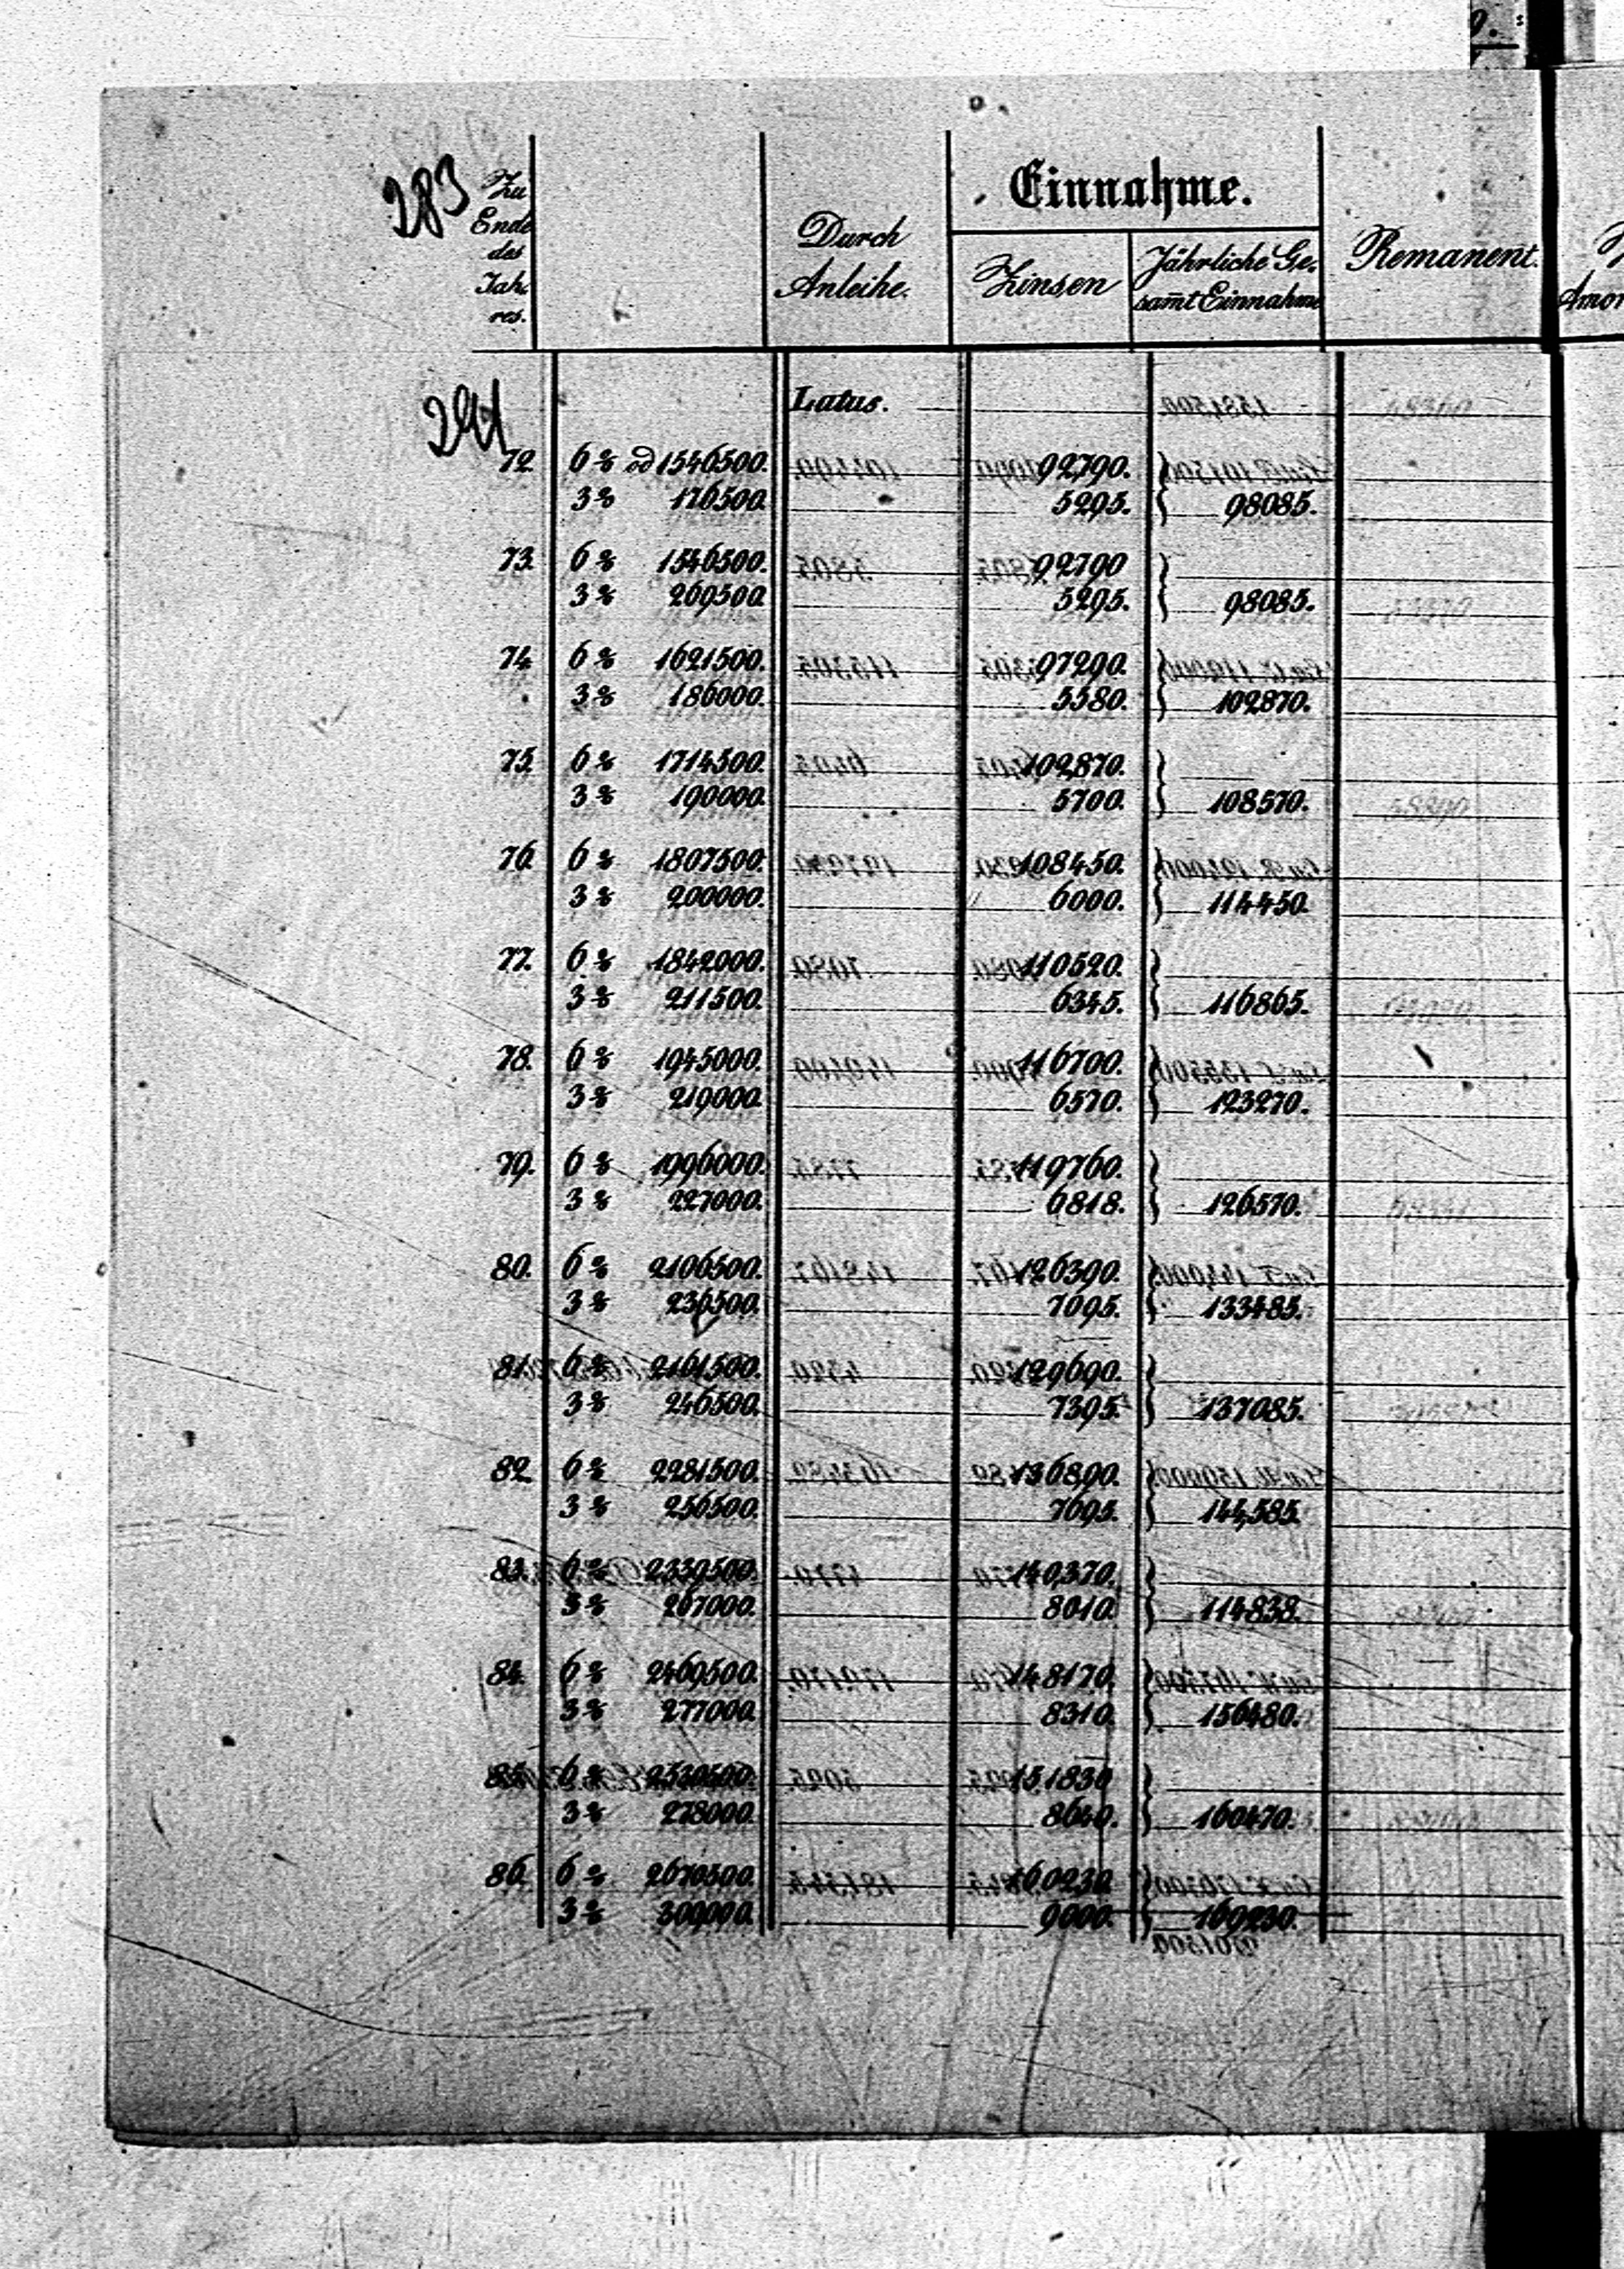 283
Zu Ende des Jahres.
Durch Anleihe.
Einnahme.
Zinsen
Jährliche Gesam̄t Einnahme
Remanent.
291
Latus.
72. 6% od 1546500. 92,790.
3% 176500. 5295. 98085.
73. 6% 1546500. 92790
3% 269500 5295. 98085.
74. 6% 1621500. 97290.
3% 186000. 5580. 102870.
75. 6% 1714500. 102,870.
3% 190000. 5700. 108570.
76. 6% 1807500. 108450.
3% 200000. 6000. 114450.
77. 6% 1842000. 110520.
3% 211500. 6345. 116865.
78. 6% 1945000. 116700.
3% 219000. 6570. 123270.
79. 6% 1996000. 119760.
3% 227000. 6818. 126570.
80. 6% 2106500. 126390.
3% 236500. 7095. 133485.
81. 6% 2161500. 129690.
3% 246500. 7395. 137085.
82. 6% 2281500. 136890.
3% 256500. 7695. 144,585.
83. 6% 2339500. 140,370.
3% 267000. 8010. 114838.
84. 6% 2469500. 148170.
3% 277000. 8310. 156480.
85. 6% 2530500. 151830
3% 278000. 8640. 160470.
86. 6% 2670500. 160230.
3% 300000. 9000. 169230.